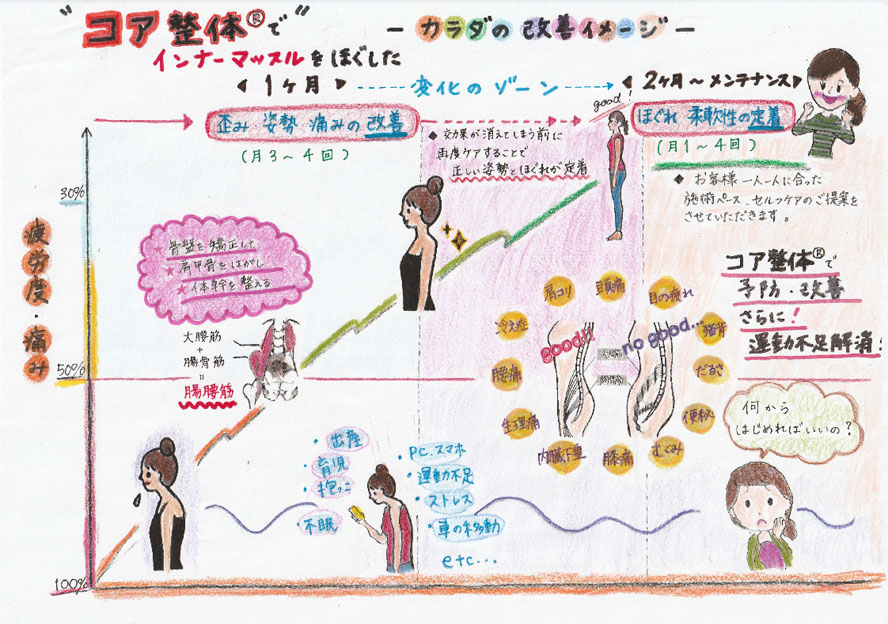 "コア整体®で"
インナーマッスルをほぐした
－ カラダの改善イメージ －
1ヶ月
変化のゾーン
2ヶ月～メンテナンス
歪み 姿勢 痛みの改善
(月3～4回)
◆ 交効果が消えてしまう前に
再度ケアすることで
正しい姿勢とほぐれが定着
good!
ほぐれ 柔軟性の定着
(月1～4回)
◆ お客様一人一人に合った
施術ペース、セルフケアのご提案を
させていただきます。
疲労度・痛み
30%
50%
100%
★骨盤を矯正して
★肩甲骨をはがし
★体幹を整える
大腰筋
+
腸骨筋
=
腸腰筋
肩コリ
頭痛
目の疲れ
冷え症
猫背
腰痛
だるさ
生理痛
便秘
内臓下垂
膝痛
むくみ
good!!
no good...
大腰筋
腸骨筋
コア整体®で
予防・改善
さらに!
運動不足解消!
何から
はじめればいいの?
・出産
・育児
・抱っこ
・不眠
・PC.スマホ
・運動不足
・ストレス
・車の移動
etc...